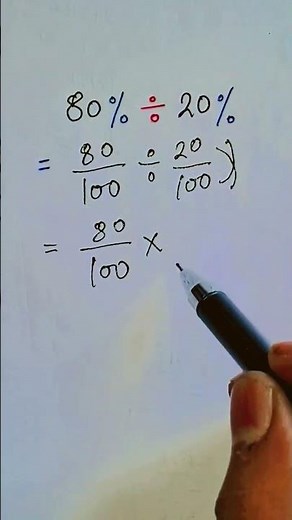 80% ÷ 20%
= 80/100 ÷ 20/100 )
= 80/100 ×